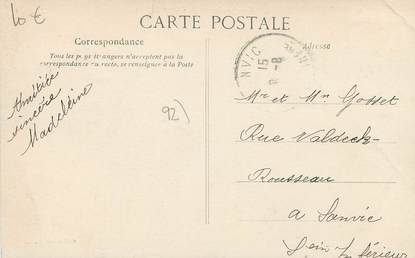 10 €
CARTE POSTALE
Correspondance
Tous les pays étrangers n'acceptent pas la
correspondance au recto, se renseigner à la Poste
Adresse
NVIC
15
8
Amitiée
sincère
Madeleine
92)
Mr et Mme Gosset
Rue Valdeck-
Rousseau
a Sanvic
Seine Inférieur